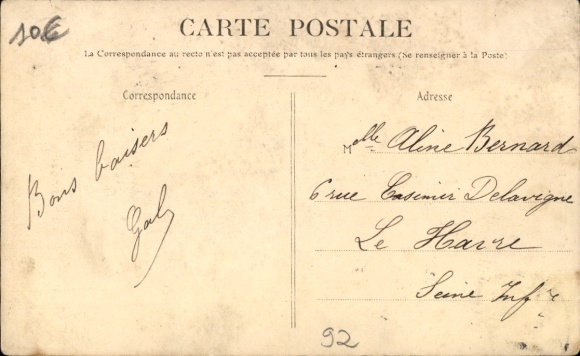 10€
CARTE POSTALE
La Correspondance au recto n'est pas acceptée par tous les pays étrangers (Se renseigner à la Poste)
Correspondance
Adresse
Bons baisers
Gaby
Melle Aline Bernard
6 rue Casimir Delavigne
Le Havre
Seine Infre
92